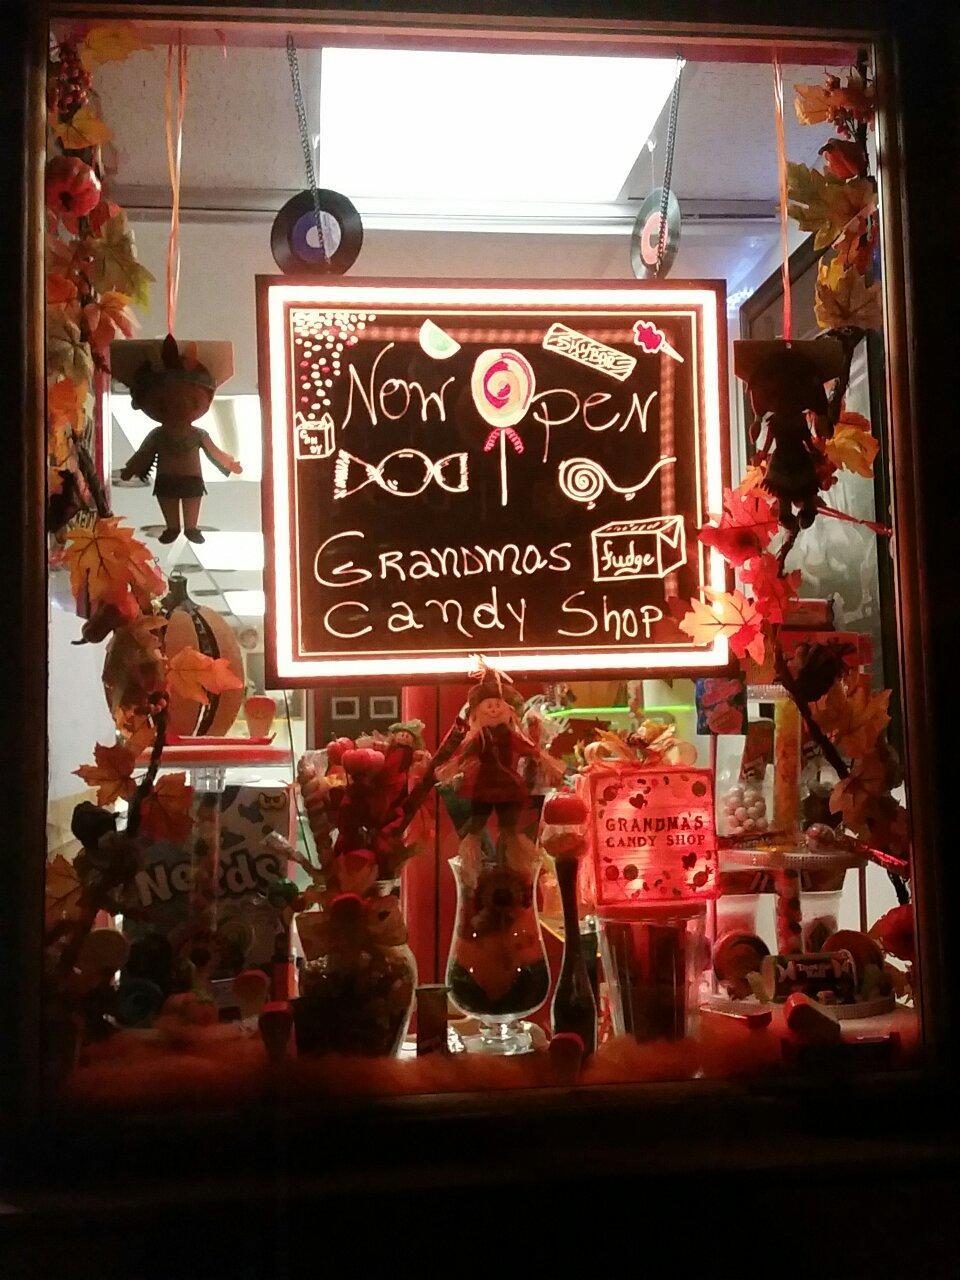 SKYBAR
Now Open
CANDY
Grandmas fudge
Candy Shop
GRANDMA'S
CANDY SHOP
Nerds